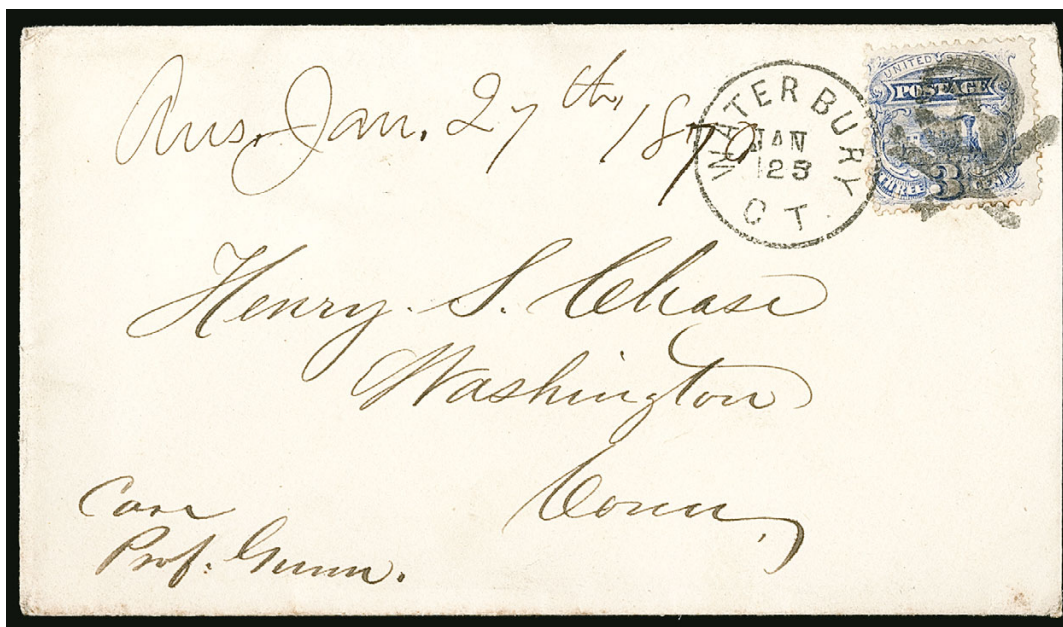 Ans. Jan. 27th, 1870
WATERBURY
JAN
25
CT.
UNITED STATES
POSTAGE
THREE 3 CENTS
Henry. S. Chase
Washington
Conn,
Care
Prof. Gunn.